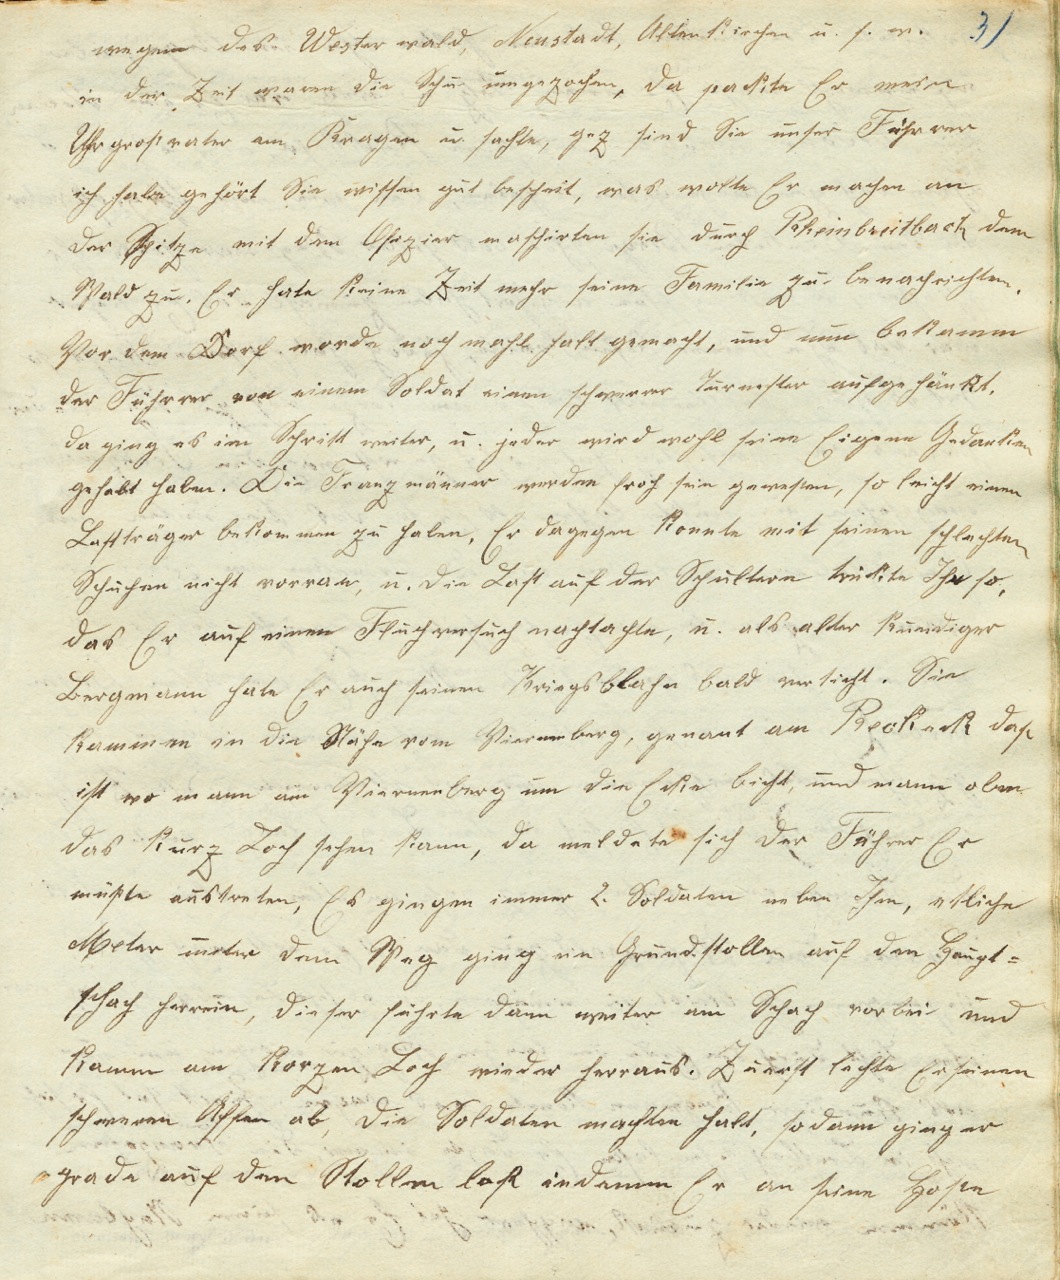 31
wegen des Westerwald, Neustadt, Altenkirchen u. s. w.
in der Zeit waren die Schu umgezochen, da pakte Er mein
Uhrgrosvater am Kragen u. sachte, gez sind Sie unser Führrer
ich habe gehört Sie wissen gut bescheit, was wolte Er machen an
der Spitze mit dem Ofizier maschirten sie durch Rheinbreitbach dem
Wald zu. Er hate keine Zeit mehr seine Familie zu benachrichten.
Vor dem Dorf worde noch mahl halt gemacht, und nun bekamm
der Führrer von einem Soldat einen schwerrer Turnester aufgehänkt.
da ging es im Schritt weiter, u. jeder wird wohl seine Eigene Gedanken
gehabt haben. Die Franzmänner werden froh sein gewesen, so leicht einen
Lastträger bekommen zu haben, Er dagegen konnte mit seinen schlechten
Schuhen nicht vorran, u. die Last auf der Schultern trükte Ihn so,
das Er auf einen Fluchversuch nachtachte, u. als alder kundiger
Bergmann hate Er auch seinen Kriegsblahn bald verticht. Sie
kammen in die Nähe vom Viernenberg, genant am Reckeck das
ist wo mann am Viernenberg um die Ecke bicht, und mann oben
das Kurz Loch sehen kann, da meldete sich der Führer Er
müßte austreten, Es gingen immer 2. Soldaten neben Ihm, etliche
Meter unter dem Weg ging ein Grundstollen auf den Haupt=
schach herrein, dieser führte dann weiter am Schach vorbei und
kamm am Korzen Loch wieder herraus. Zuerst lechte Er seinen
schweren Affen ab, die Soldaten machten halt, sodann ging er
grade auf den Stollen loß indemm Er an seine Hose